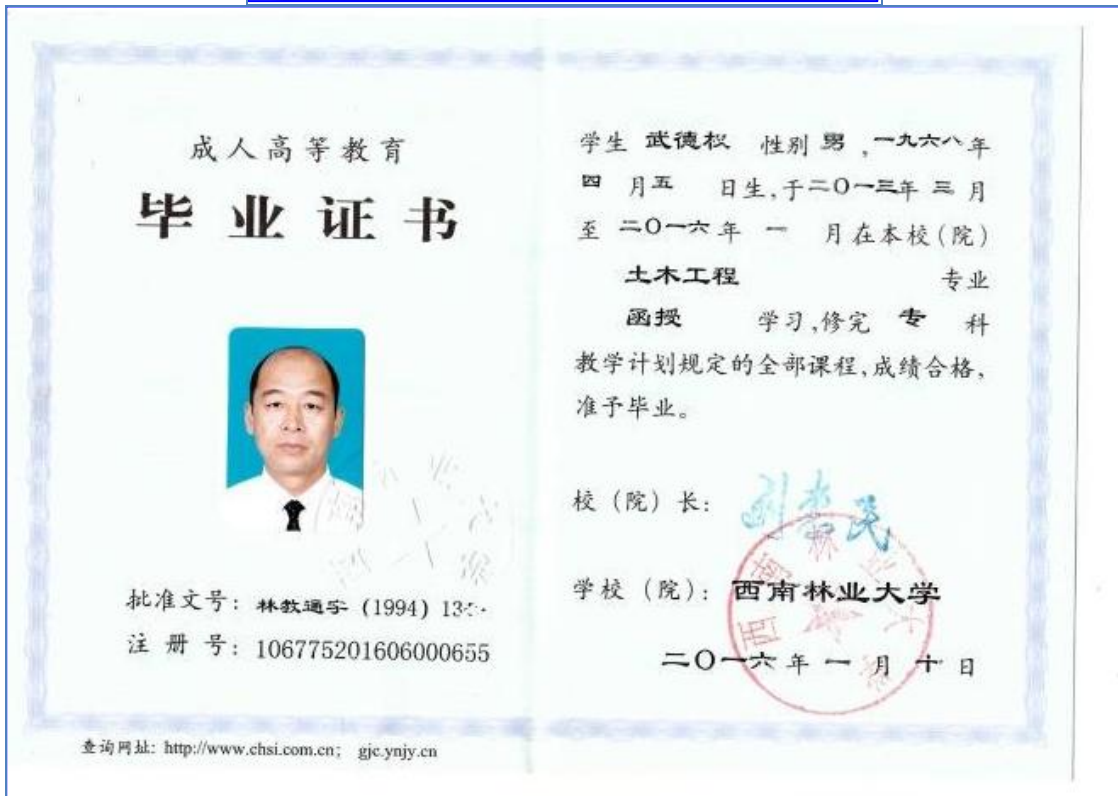 成人高等教育
毕业证书
批准文号：林教通字（1994）13
注册号：106775201606000655
查询网址：http://www.chsi.com.cn； gjc.ynjy.cn
学生 武德权 性别 男，一九六八年
四月五日生，于二〇一三年三月
至二〇一六年一月在本校（院）
土木工程 专业
函授 学习，修完 专 科
教学计划规定的全部课程，成绩合格，
准予毕业。
校（院）长：
学校（院）：西南林业大学
二〇一六年一月十日